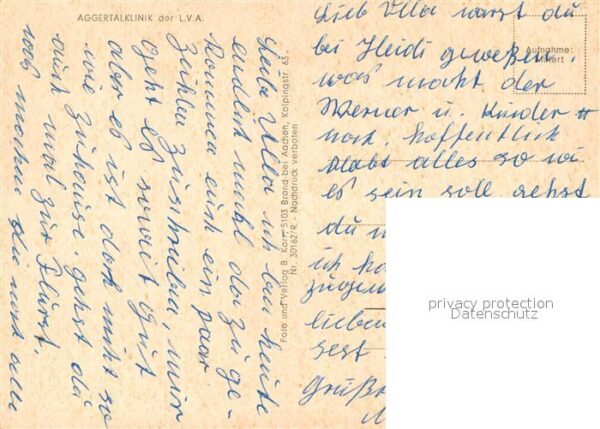 AGGERTALKLINIK der L.V.A.
Liebe Ulla ich bin heute
endlich mahl da zu ge-
kommen euch ein paar
Zeihlen zu schreiben, mir
geht es soweit gut
aber es ist doch nicht so
wie zuhause. gehst du
auch mal zur Flurst.
was machen sie noch alle
Foto und Verlag B. Kart, 5103 Brand bei Aachen, Kolpingstr. 63
Nr. 30162/R - Nachdruck verboten
Lieb Ulla warst du
bei Heidi gewesen.
was macht der
Werner u. Kinder
noch, hoffentlich
klabt alles so wie
es sein soll gehst
du
ich
lieben
Grüße
Aufnahme:
privacy protection
Datenschutz